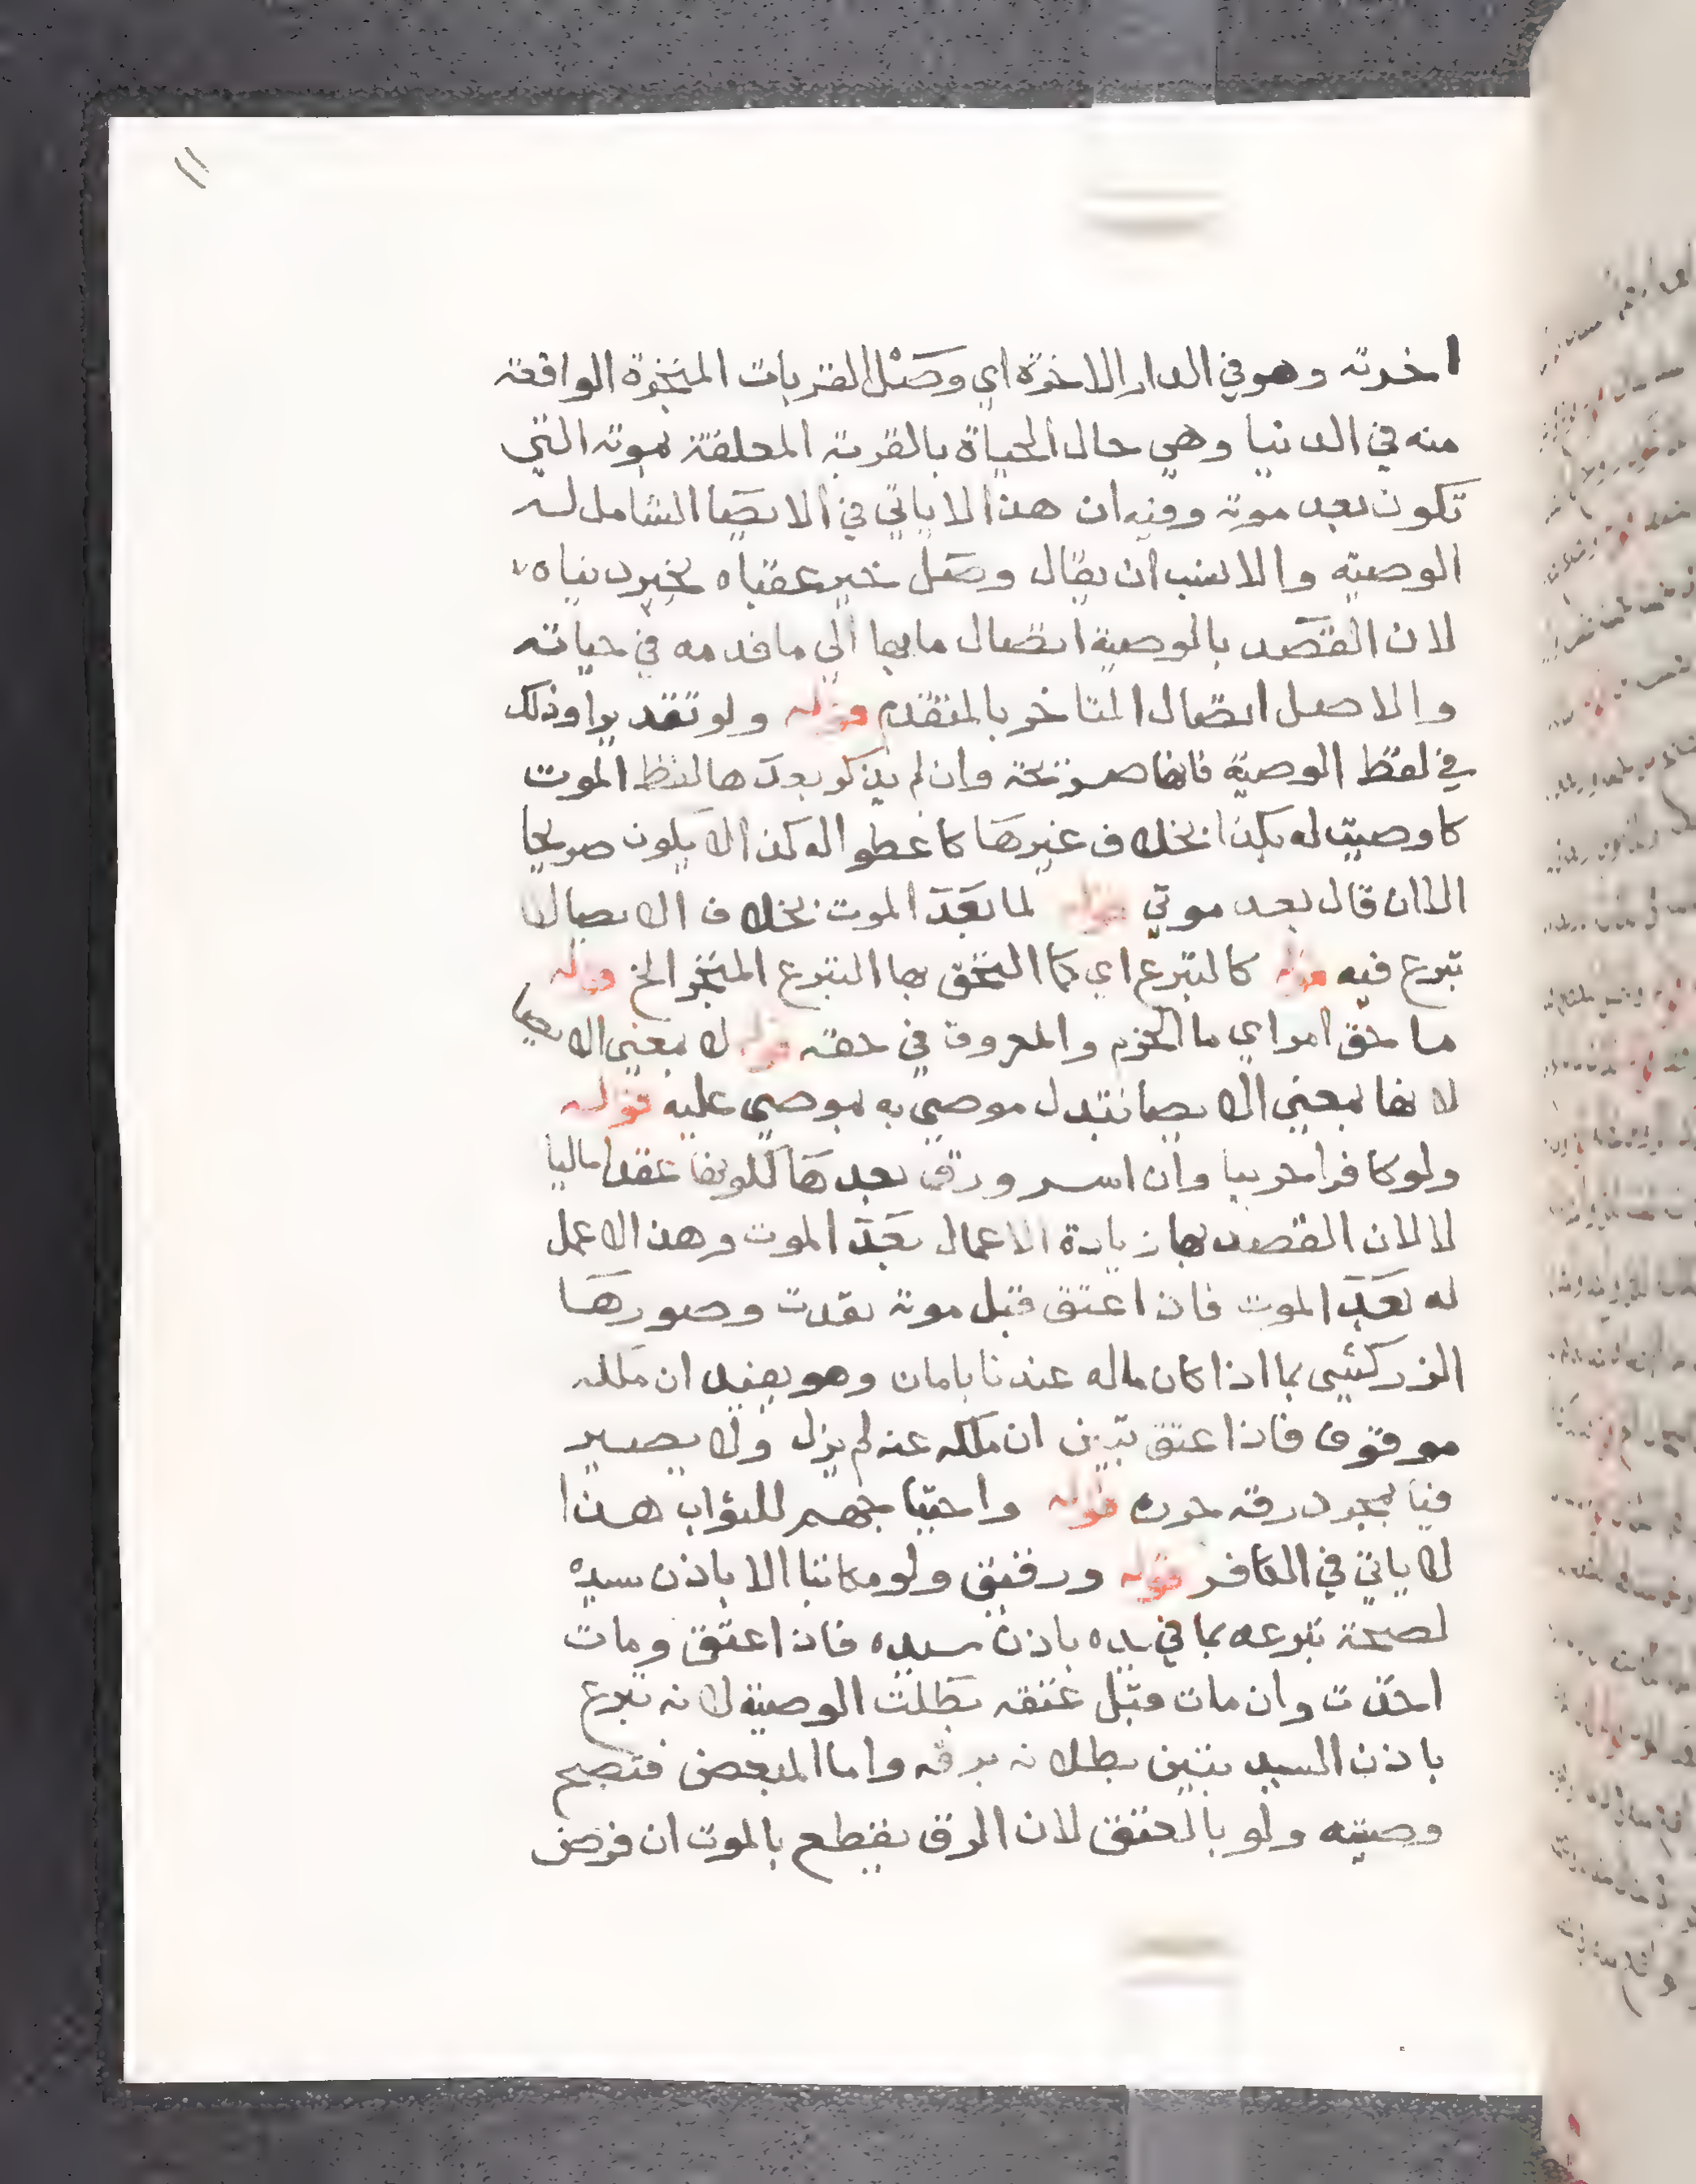 ١١
اخرته وهو في الدار الاخرة اي وصل القربات المنجزة الواقعة
منه في الدنيا وهي حال الحياة بالقربة المعلقة بموته التي
تكون بعد موته وفيه ان هذا لا ياتي في الايصا الشامل له
الوصية والانسب ان يقال وصل خير عقباه بخير دنياه
لان القصد بالوصية ايصال ما بها الى ما قدمه في حياته
والاصل ايصال المتاخر بالمتقدم قوله ولو تقديرا وذلك
في لفظ الوصية فانها صريحة وان لم يذكر بعدها لفظ الموت
كاوصيت له بكذا بخلاف غيرها كاعطوا له كذا لا يكون صريحا
الا ان قال بعد موتي قوله لما بعد الموت بخلاف الايصا لا
تبرع فيه قوله كالتبرع اي كما التحق بها التبرع المنجز الخ قوله
ما حق امرا اي ما الحزم والمعروف في حقه قوله لا بمعنى الايصا
لانها بمعنى الايصا تتبدل موصى به بموصى عليه قوله
ولو كافرا حربيا وان اسر ورق بعدها لكونها عقدا ماليا
لا لان القصد بها زيادة الاعمال بعد الموت وهذا لا عمل
له بعد الموت فان اعتق قبل موته نفذت وصورها
الزركشي بما اذا كان ماله عندنا بامان وهو يفيد ان ملكه
موقوف فاذا عتق تبين ان ملكه عنه لم يزل ولا يصير
فيا بمجرد رقه حرره قوله واحتياجهم للثواب هذا
لا ياتي في الكافر قوله ورقيق ولو مكاتبا الا باذن سيده
لصحة تبرعه بما في يده باذن سيده فاذا عتق ومات
اخذت وان مات قبل عتقه بطلت الوصية لانه تبرع
باذن السيد يتبين بطلانه برقه واما المبعض فتصح
وصيته ولو بالعتق لان الرق ينقطع بالموت ان فرض